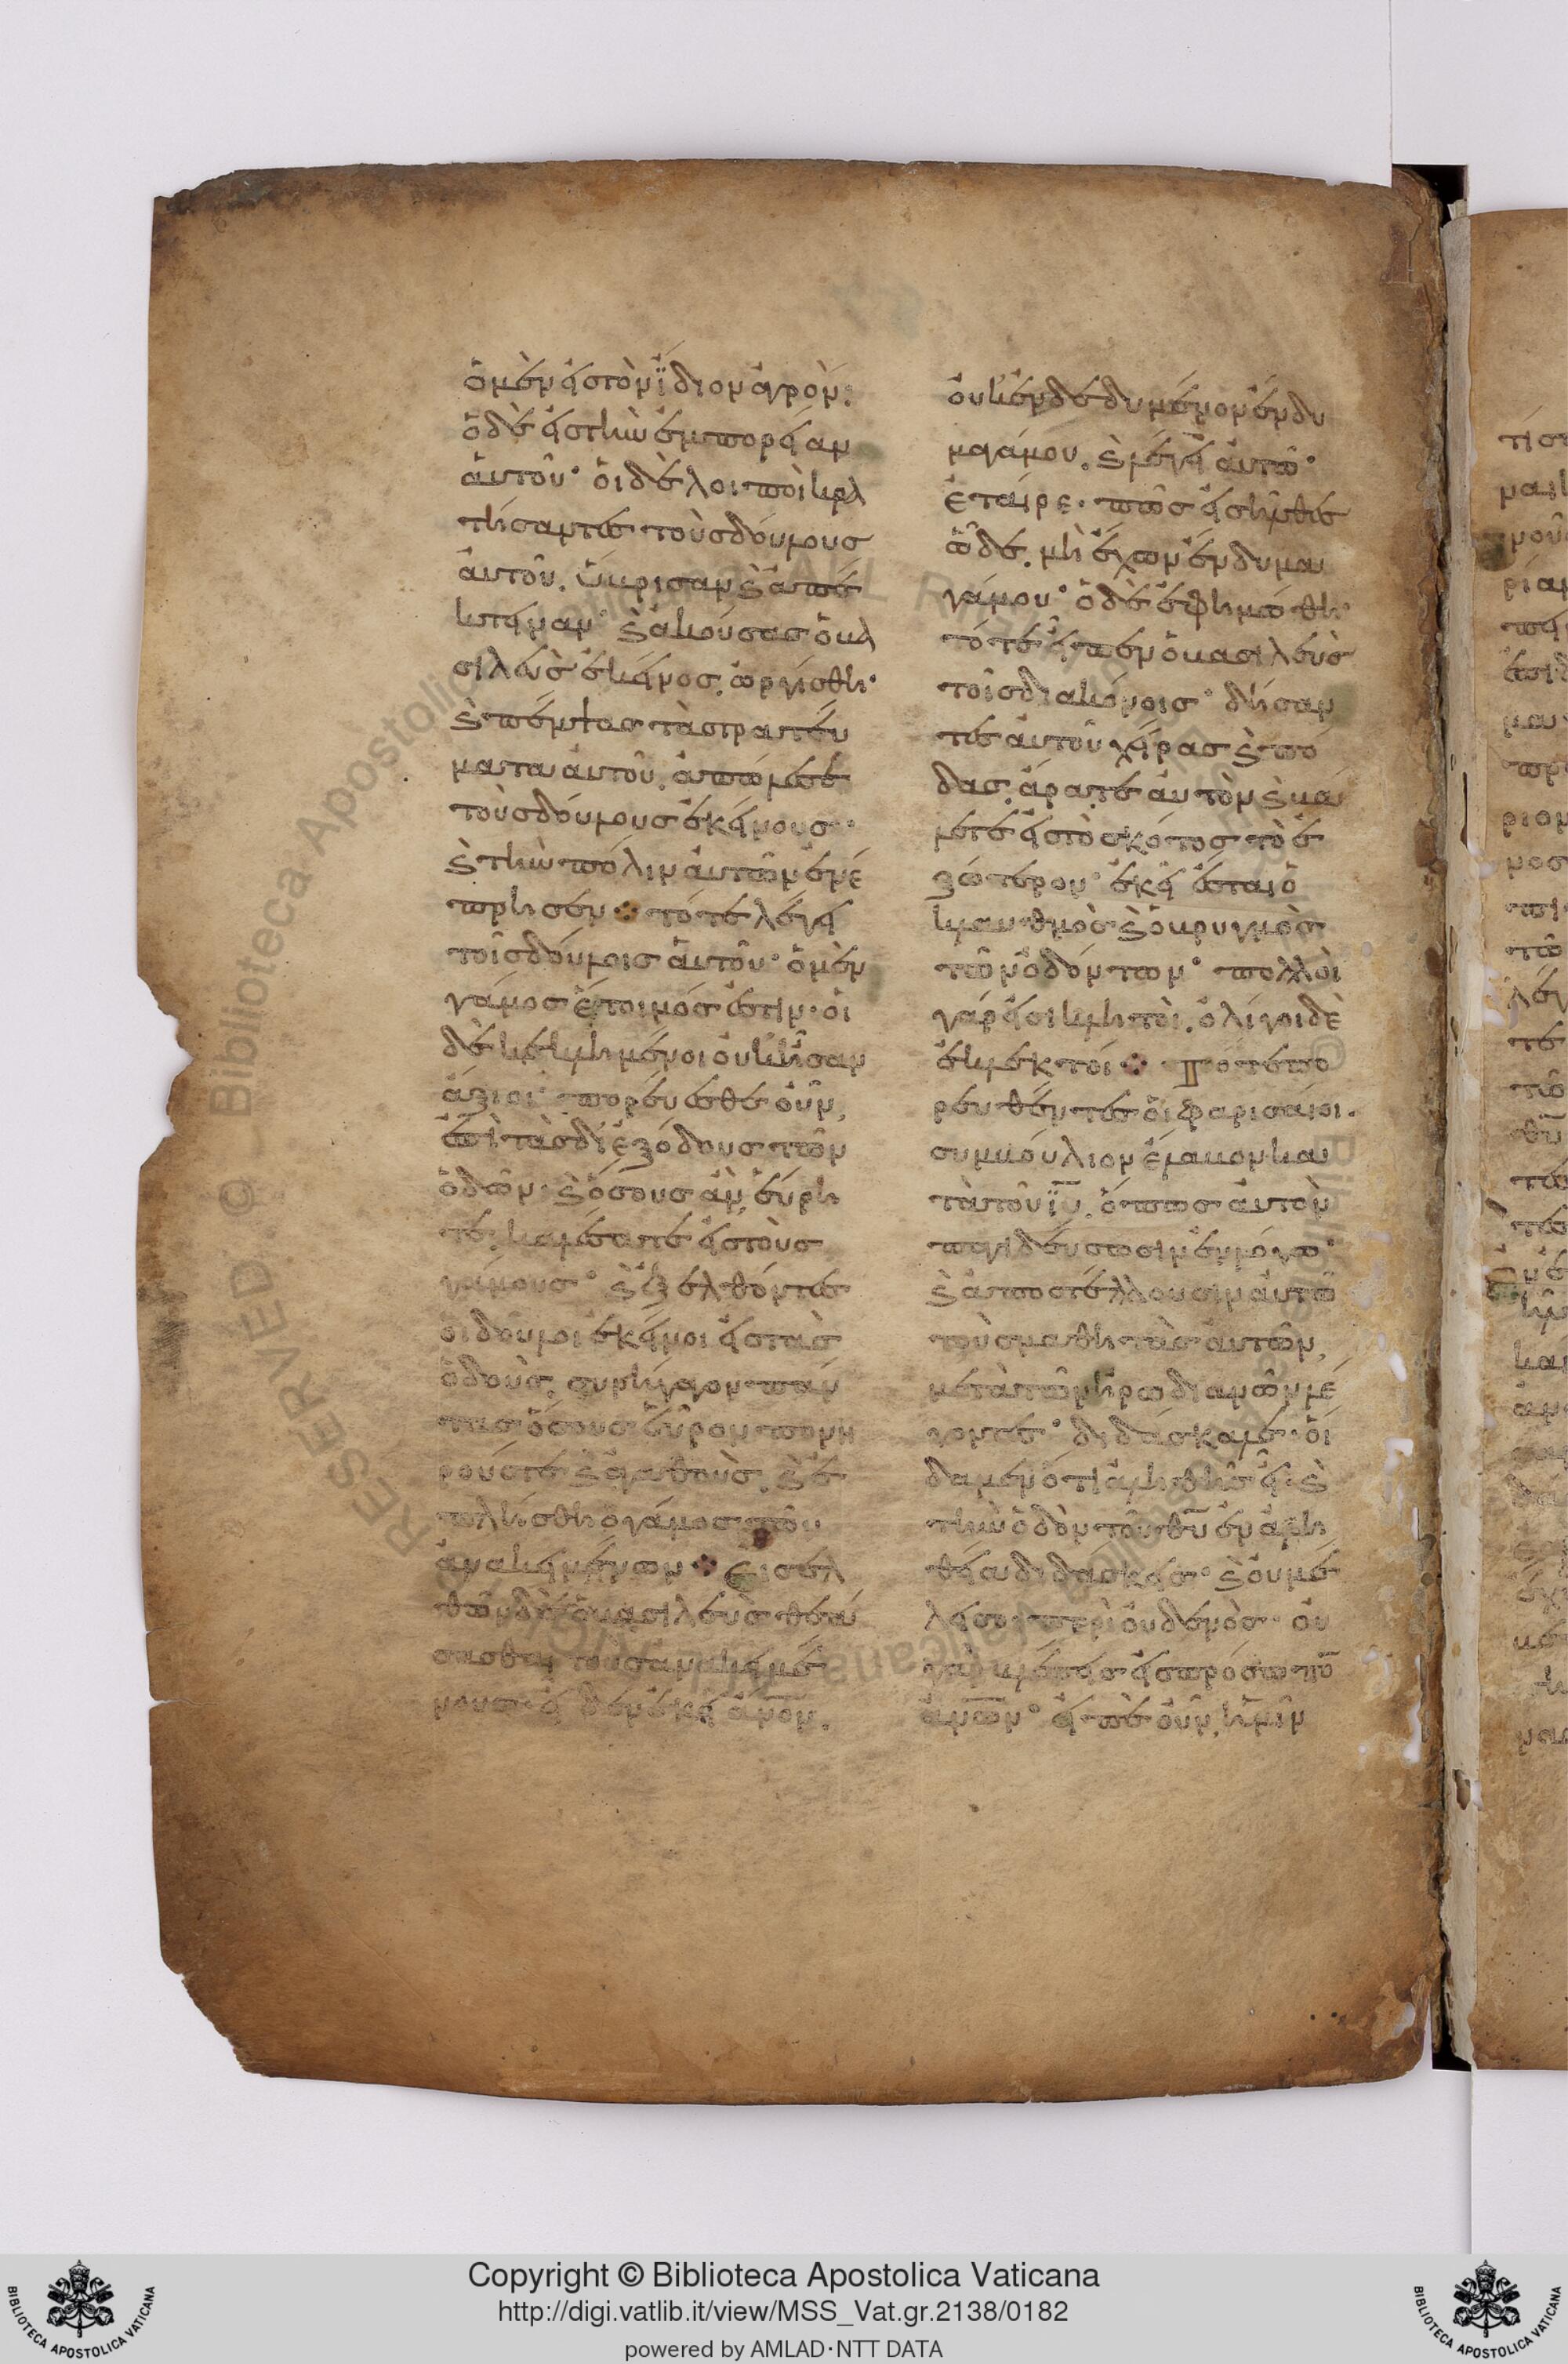 ὁ μὲν εἰς τὸν ἴδιον ἀγρόν·
ὁ δὲ εἰς τὴν ἐμπορείαν
αὐτοῦ· οἱ δὲ λοιποὶ κρα
τήσαντες τοὺς δούλους
αὐτοῦ, ὕβρισαν καὶ ἀπέ
κτειναν· καὶ ἀκούσας ὁ βα
σιλεὺς ἐκεῖνος, ὠργίσθη·
καὶ πέμψας τὰ στρατεύ
ματα αὐτοῦ, ἀπώλεσε
τοὺς δούλους ἐκείνους·
καὶ τὴν πόλιν αὐτῶν ἐνέ
πρησεν· τότε λέγει
τοῖς δούλοις αὐτοῦ· ὁ μὲν
γάμος ἕτοιμός ἐστιν· οἱ
δὲ κεκλημένοι οὐκ ἦσαν
ἄξιοι· πορεύεσθε οὖν,
ἐπὶ τὰς διεξόδους τῶν
ὁδῶν· καὶ ὅσους ἂν εὕρη
τε, καλέσατε εἰς τοὺς
γάμους· καὶ ἐξελθόντες
οἱ δοῦλοι ἐκεῖνοι εἰς τὰς
ὁδοὺς, συνήγαγον πάν
τας ὅσους εὗρον πονη
ρούς τε καὶ ἀγαθοὺς, καὶ ἐ
πλήσθη ὁ γάμος τῶν
ἀνακειμένων· Εἰσελ
θὼν δὲ ὁ βασιλεὺς θεά
σασθαι τοὺς ἀνακειμέ
νους· εἶδεν ἐκεῖ ἄνον,
οὐκ ἐνδεδυμένον ἔνδυ
μα γάμου, καὶ λέγει αὐτῷ·
ἑταῖρε· πῶς εἰσῆλθες
ὧδε, μὴ ἔχων ἔνδυμα
γάμου· ὁ δὲ ἐφημώθη·
τότε εἶπεν ὁ βασιλεὺς
τοῖς διακόνοις· δήσαν
τες αὐτοῦ χεῖρας καὶ πό
δας, ἄρατε αὐτὸν καὶ βά
λετε εἰς τὸ σκότος τὸ ἐ
ξώτερον· ἐκεῖ ἔσται ὁ
κλαυθμὸς καὶ ὁ βρυγμὸς
τῶν ὀδόντων· πολλοὶ
γάρ εἰσι κλητοὶ, ὀλίγοι δὲ
ἐκλεκτοί· Τότε πο
ρευθέντες οἱ φαρισαῖοι·
συμβούλιον ἔλαβον κα
τὰ τοῦ ἰυ, ὅπως αὐτὸν
παγιδεύσωσιν ἐν λόγω·
καὶ ἀποστέλλουσιν αὐτῶ
τοὺς μαθητὰς αὐτῶν,
μετὰ τῶν ἡρωδιανῶν λέ
γοντες· διδάσκαλε· οἴ
δαμεν ὅτι ἀληθὴς εἶ· καὶ
τὴν ὁδὸν τοῦ θυ ἐν ἀλη
θεία διδάσκεις· καὶ οὐ μέ
λει σοι περὶ οὐδενὸς· οὐ
γὰρ βλέπεις εἰς πρόσωπον
ἀνων· εἰπὲ οὖν ἡμῖν
Copyright © Biblioteca Apostolica Vaticana
http://digi.vatlib.it/view/MSS_Vat.gr.2138/0182
powered by AMLAD·NTT DATA
BIBLIOTECA APOSTOLICA VATICANA
BIBLIOTECA APOSTOLICA VATICANA